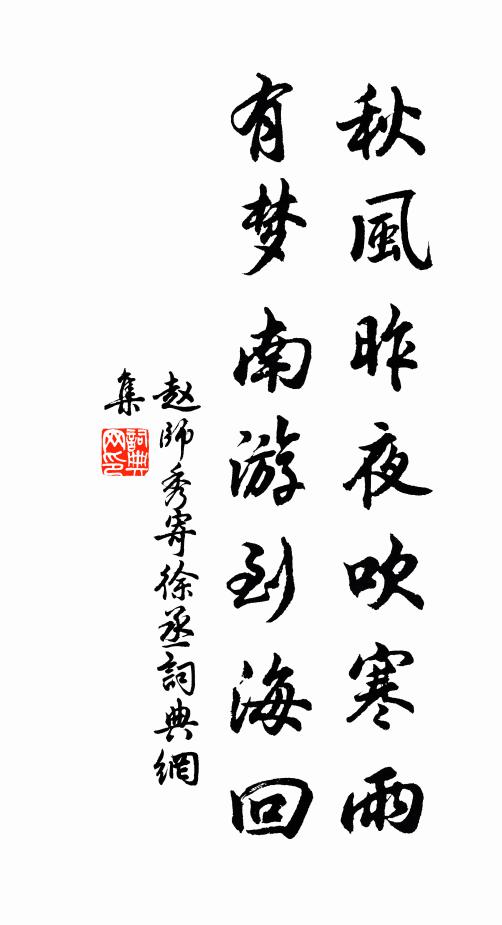 秋風昨夜吹寒雨
有梦南游到海回
赵師秀寄徐丞詞典網
集
詞典
网印